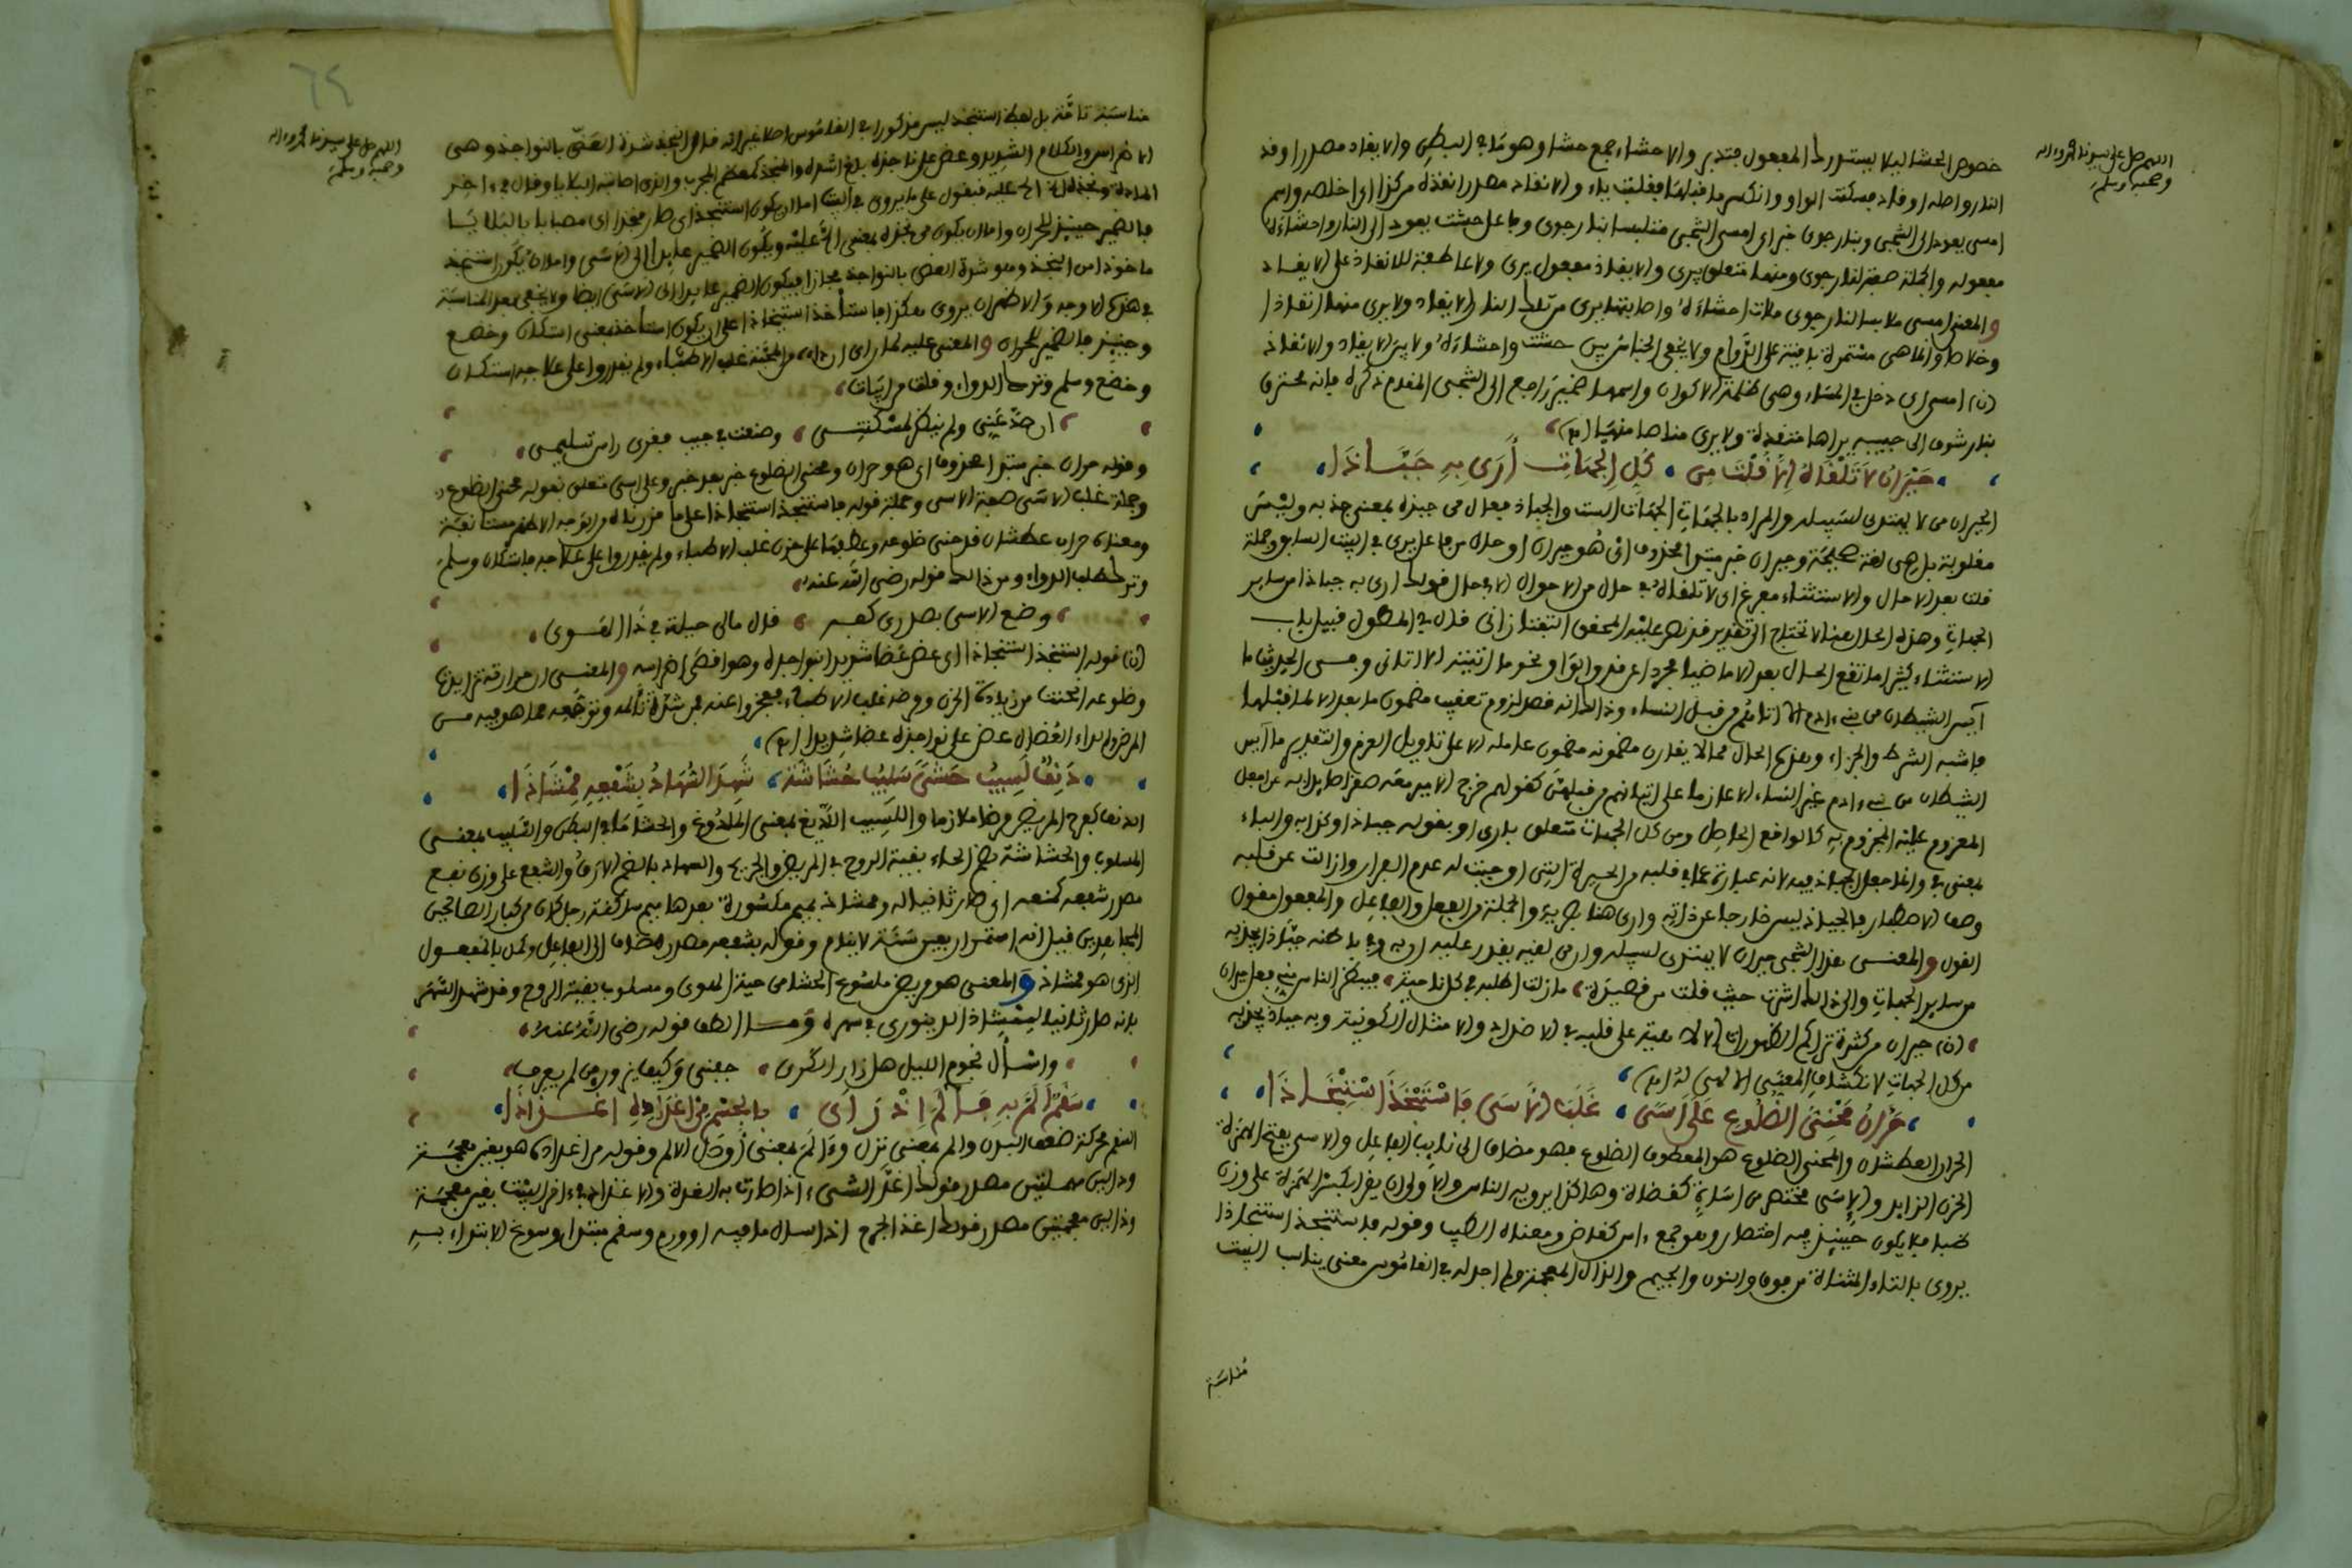 اللهم صل على سيدنا محمد وءاله
وصحبه وسلم
خصوص الحشا ليلا يستدرك المفعول فتدبر والاحشاء جمع حشا وهو ما في البطن والايقاد مصدر اوقد
النار واصله اوقاد فسكنت الواو وانكسر ما قبلها فقلبت ياء والانقاذ مصدر انقذه من كذا اي اخلصه واسم
امسى يعود الى الشجي وبنار جوى خبر اي امسى الشجي متلبسا بنار جوى وفاعل حشت يعود الى النار واحشاءه
مفعوله والجملة صفة لنار جوى ومنها متعلق بيرى والايقاد مفعول يرى ولا عاطفة للانقاذ على الايقاد
والمعنى امسى ملابسا لنار جوى ملات احشاءه واصابتها يرى من تلك النار الايقاد ولا يرى منها انقاذا
وخلاصا وانما هي مستمرة باقية على الدوام ولا يخفى الجناس بين حشت واحشاءه ولا بين الايقاد والانقاذ
(ن) امسى اي دخل في المساء وهي ظلمة الاكوان واسمها ضمير راجع الى الشجي المتقدم ذكره فانه محترق
بنار شوق الى حبيبه يراها متقدة ولا يرى مناصا منها (اهـ)
حيران لا تلقاه الا قلت من كل الجهات ارى به جباذا
الحيران من لا يهتدي لسبيله والمراد بالجهات الجهات الست والجباذ فعال من جبذه بمعنى جذبه وليست
مقلوبة بل هي لغة صحيحة وحيران خبر مبتدا محذوف اي هو حيران او حال من فاعل يرى في البيت السابق وجملة
قلت بعد الا حال والاستثناء مفرغ اي لا تلقاه في حال من الاحوال الا في حال قولك ارى به جباذا من ساير
الجهات وهذه الحال هنا لا تحتاج الى تقدير قد نص عليه المحقق التفتازاني قال في المطول قبيل باب
الاستثناء كثيرا ما تقع الحال بعد الا ماضيا مجردا عن قد والواو نحو ما اتيته الا اتاني وفي الحديث ما
آيس الشيطان من بني ءادم الا اتاهم من قبل النساء وذلك انه قصد لزوم تعقيب مضمون ما بعد الا لما قبلها
فاشبه الشرط والجزاء وهذه الحال مما لا يقارن مضمونه مضمون عامله الا على تاويل العزم والتقدير ما آيس
الشيطان من بني ءادم غير النساء الا عازما على اتيانهم من قبلهن كقولهم خرج الامير معه صقر صايدا به غدا جعل
المعزوم عليه المجزوم به كالواقع الحاصل ومن كل الجهات متعلق بارى او بقوله جباذا وكذا به والباء
بمعنى في وانما جعل الجباذ فيه لانه عبارة عما في قلبه من الحيرة التي اوجبت له عدم القرار وازالت عن قلبه
وصف الاصطبار فالجباذ ليس خارجا عن ذاته وارى هنا بصرية والجملة من الفعل والفاعل والمفعول مقول
القول والمعنى هذا الشجي حيران لا يهتدي لسبيله وان من لقيه يقدر عليه او به وفي باطنه جباذ يجذبه
من ساير الجهات والى ذلك اشرت حيث قلت من قصيدة ما زلت اطلبه في كل ناحية فيبظن الناس بي فعل حيران
(ن) حيران من كثرة تراكم الظهورات الالاهية على قلبه في الاضداد والامثال الكونية وبه جباذ يجذبه
من كل الجهات لانكشاف الغيب الالاهي له (اهـ)
حران محني الضلوع على اسى غلب الاسى فاستنجذ استنجاذا
الحران العطشان والمحني الضلوع هو المعطوف الضلوع فهو مضاف الى نايب الفاعل والاسى بفتح الهمزة
الحزن الزايد والاسى مختصر من اساة كقضاة وهاكذا يرويه الناس والاولى ان يقرا بكسر الهمزة على وزن
ظبا فلا يكون حينئذ فيه اختصار وهو جمع ءاس كقاض ومعناه الطبيب وقوله فاستنجذ استنجاذا
يروى بالتاء المثناة من فوق والنون والجيم والذال المعجمة ولم اجد له في القاموس معنى يناسب البيت
مناسبة
٦٢
اللهم صل على سيدنا محمد وءاله
وصحبه وسلم
مناسبة تامة بل لفظ استنجذ ليس مذكورا في القاموس اصلا غير انه قال النجذ شدة العض بالنواجذ وهي
الاضراس والكلام الشديد وعض على ناجذه بلغ اشده والمنجذ كمعظم المجرب والذي اصابته البلايا وقال في ءاخر
المادة ونجذه الخ عليه فنقول على ما يروى في البيت اما ان يكون استنجذ اي صار منجذا اي مصابا بالبلايا
فالضمير حينئذ للحران واما ان يكون من نجذه بمعنى الخ عليه ويكون الضمير عايدا الى الاسى واما ان يكون استنجذ
ماخوذا من النجذ وهو شدة العض بالنواجذ مجازا فيكون الضمير عايدا الى الاسى ايضا ولا يخفى بعد المناسبة
في هذه الاوجه والاظهر ان يروى هكذا فاستأخذ استئخاذا على ان يكون استأخذ بمعنى استكان وخضع
وحينئذ فالضمير للحران والمعنى عليه لما راى ان داء المحبة غلب الاطباء ولم يقدروا على علاجه استكان
وخضع وسلم وترك الدواء وقلت من ابيات
ان صد عني ولم ينظر لمسكنتي وضعت في جيب فقري راس تسليمي
وقوله حران خبر مبتدا محذوف اي هو حران ومحني الضلوع خبر بعد خبر وعلى اسى متعلق بقوله محني الضلوع
وجملة غلب الاسى صفة الاسى وجملة قوله فاستنجذ استنجاذا على ما قررناه من الوجه الاظهر مستانفة
ومعناه حران عطشان قد حنى ضلوعه وعطفها على حزن غلب الاطباء ولم يقدروا على علاجه فاستكان وسلم
وترك طلب الدواء ومن ذلك قوله رضي الله عنه
وضع الاسى بصدري كفه قال مالي حيلة في ذا الهوى
(ن) قوله استنجذ استنجاذا اي عض عضا شديدا بنواجذه وهو اقصى اضراسه والمعنى ان حرارته تزايدت
وضلوعه انحنت من زيادة الحزن ومرضه غلب الاطباء فعجزوا عنه من شدة تألمه وتوجعه مما هو فيه من
المرض والداء العضال عض على نواجذه عضا شديدا (اهـ)
دنف لسيب حشى سليب حشاشة شهد السهاد بشفعه ممشاذا
الدنف كفرح المريض مرضا ملازما واللسيب اللديغ بمعنى الملدوغ والحشا ما في البطن والسليب بمعنى
المسلوب والحشاشة بضم الحاء بقية الروح في المريض والجريح والسهاد بالضم الارق والشفع على وزن نفع
مصدر شفعه كمنعه اي صار ثانيا له وممشاذ بميم مكسورة بعدها ميم ساكنة رجل كان من كبار الصالحين
المجاهدين قيل انه استمر اربعين سنة لا ينام وقوله بشفعه مصدر مضاف الى الفاعل وكمل بالمفعول
الذي هو ممشاذ والمعنى هو مريض ملسوع الحشا من حية الهوى ومسلوب بقية الروح وقد شهد السهر
بانه صار ثانيا لممشاذ الدينوري في سهره وما الطف قوله رضي الله عنه
واسأل نجوم الليل هل زار الكرى جفني وكيف يزور من لم يعرف
سقم الم به فآلم اذ راى بالجسم من اغداده اغذاذا
السقم محركة ضعف البدن والم بمعنى نزل وءالم بمعنى اوصل الالم وقوله من اغداده هو بغين معجمة
ودالين مهملتين مصدر قولك اغد الشيء اذا صارت به الغدة والاغذاذ في ءاخر البيت بغين معجمة
وذالين معجمتين مصدر قولك اغذ الجرح اذا سال ما فيه او ورم وسقم مبتدا وسوغ الابتداء به